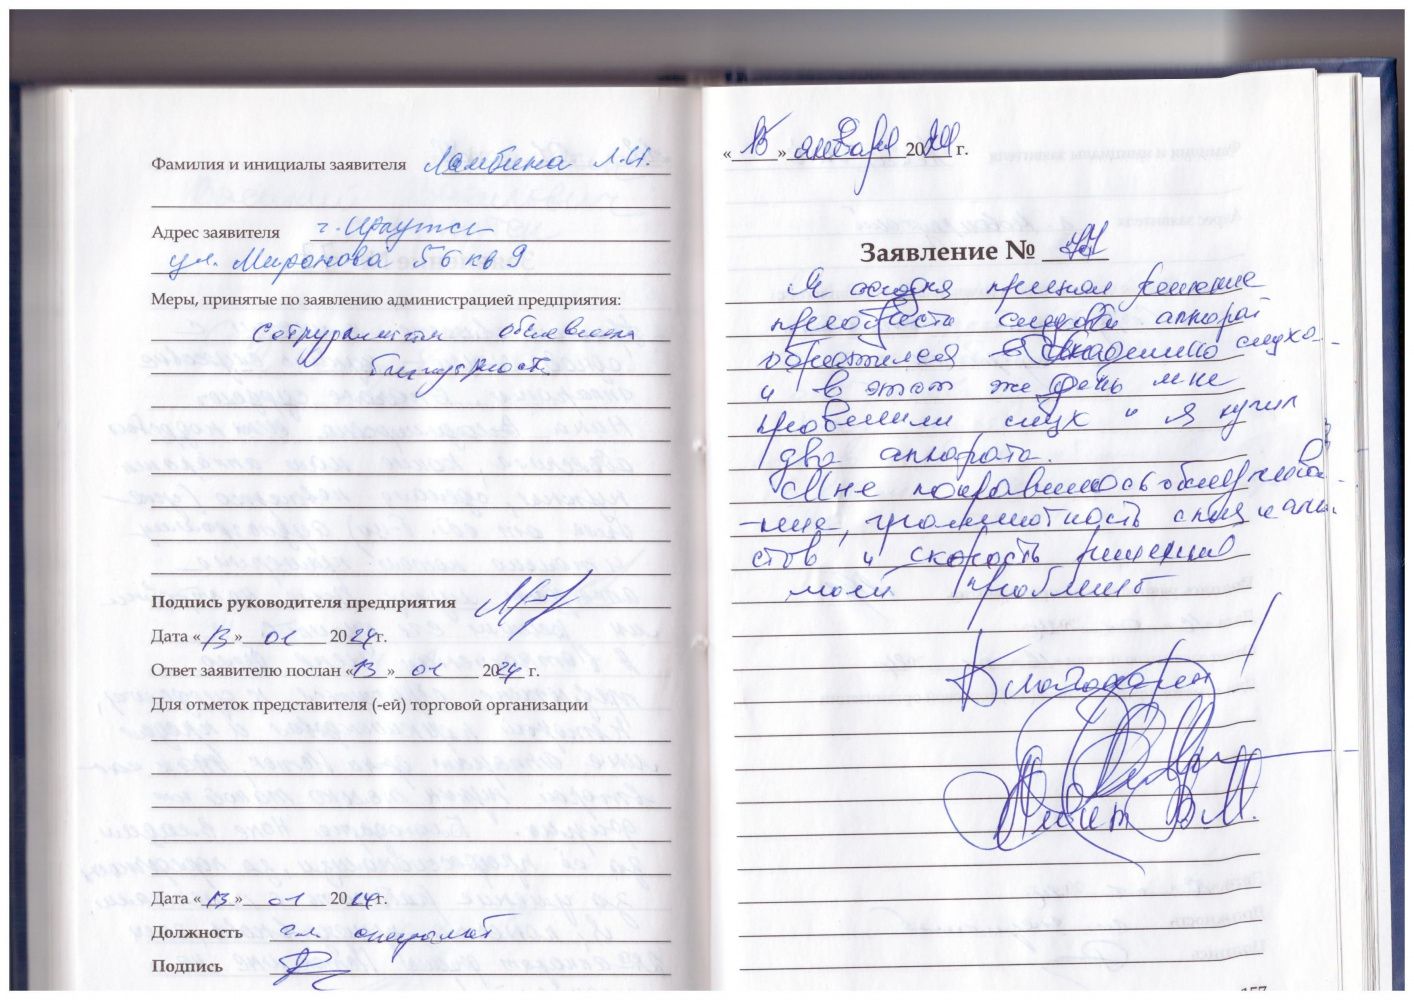 Фамилия и инициалы заявителя Лямбина Л.И.
Адрес заявителя г. Иркутск
ул. Миронова 5б кв 9
Меры, принятые по заявлению администрацией предприятия:
сотрудникам объявлена
благодарность.
Подпись руководителя предприятия
Дата « 13 » 01 2024 г.
Ответ заявителю послан « 13 » 01 2024 г.
Для отметок представителя (-ей) торговой организации
Дата « 13 » 01 2024 г.
Должность
Подпись
« » января 2024 г.
Заявление № 77
Я сегодня принял решение
преобрести слуховой аппарат
обратился в Академию слуха
и в этот же день мне
проверили слух и я купил
два аппарата.
Мне понравилось обслужива-
-ние, грамотность специали-
стов и скорость решения
моей проблемы
Благодарен!
В.М.
157